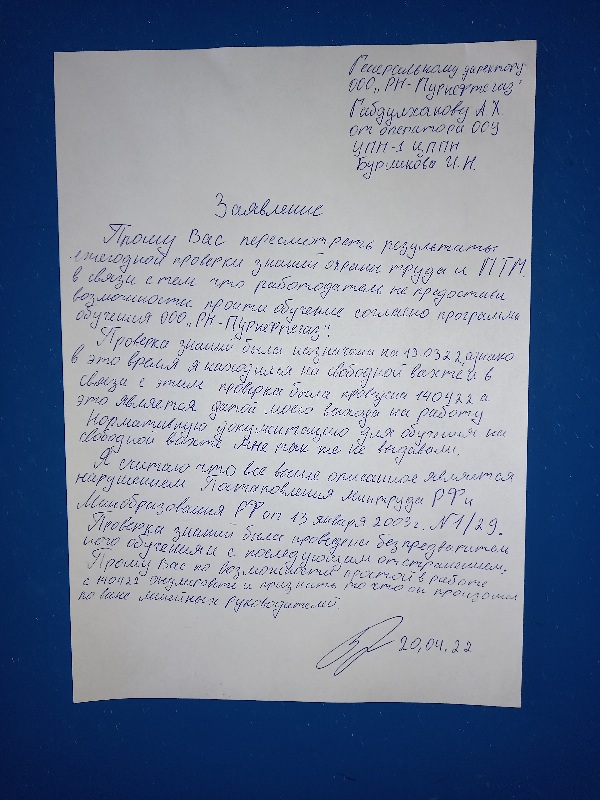 Генеральному директору
ООО „РН-Пурнефтегаз"
Габдулхакову А.Х.
от оператора ООУ
ЦПН-1 ЦППН
Бурликова И.Н.
Заявление
Прошу Вас пересмотреть результаты
ежегодной проверки знаний охраны труда и ПТМ,
в связи с тем что работодатем не предостави
возможности пройти обучение согласно программы
обучения ООО „РН-Пурнефтегаз".
Проверка знаний была назначена на 13.03.22, однако
в это время я находился на свободной вахте и в
связи с этим проверка была проведена 140422 а
это является датой моего выхода на работу
Нормативную документацию для обучения на
свободной вахте мне так же не выдавали.
Я считаю что всё выше описанное является
нарушением Постановления Минтруда РФ и
Минобразования РФ от 13 января 2003 г. N1/29.
Проверка знаний была проведена без предварител
ного обучения с последующим отстранением.
Прошу Вас по возможности простой в работе
с 140422 и признать то что он произошел
по вине линейных руководителей.
20.04.22